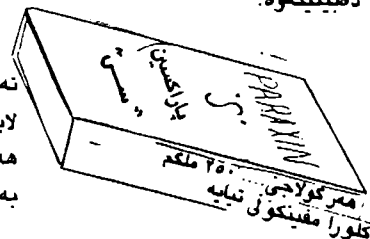 دەبینینەوە.
PARAXIN
پاراکسین
هەر گولاجێ ٢٥٠ ملگم
کلورا مفینکولی تیایە
نە
لای
هە
بە